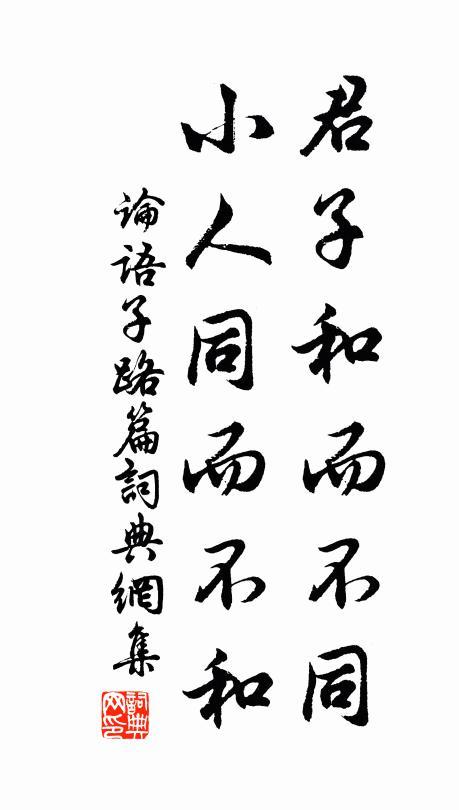 君子和而不同
小人同而不和
論語子路篇詞典網集
詞典網印